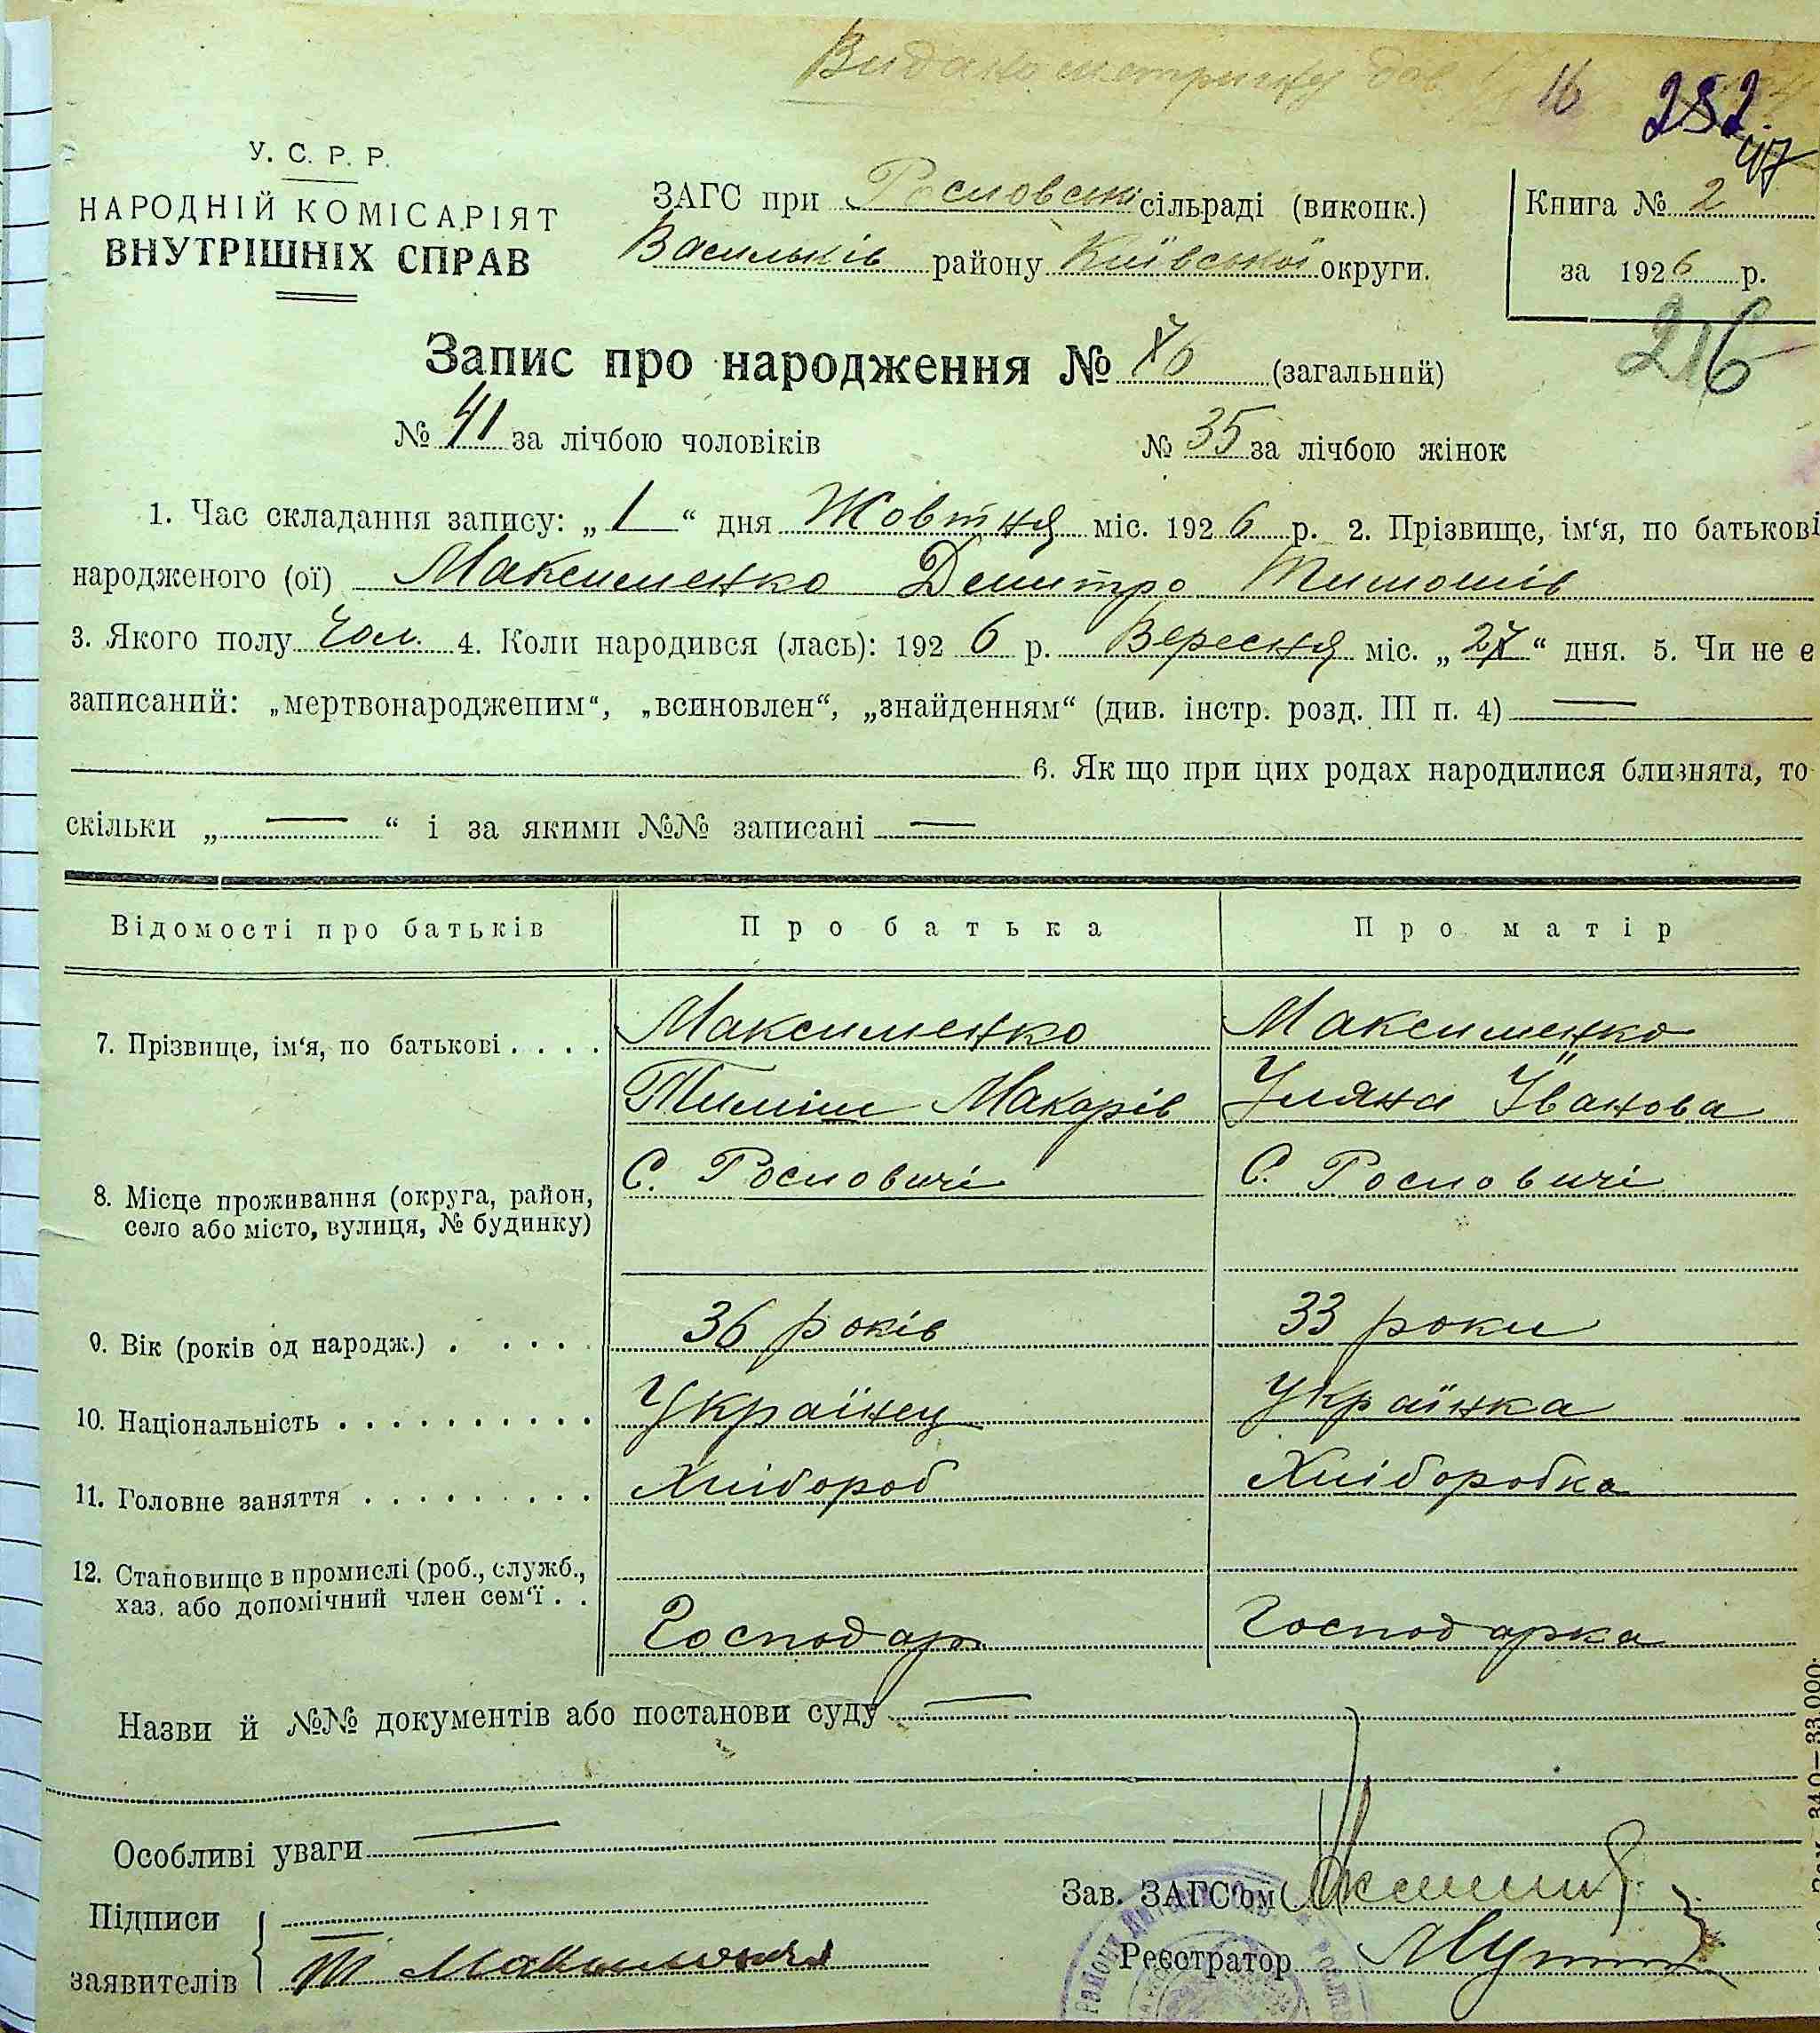 Видано метрику
16
282
47
У. С. Р. Р.
НАРОДНІЙ КОМІСАРІЯТ
ВНУТРІШНІХ СПРАВ
ЗАГС при Рословській сільраді (виконк.)
Васильків району Київської округи.
Книга № 2
за 1926 р.
216
Запис про народження № 76 (загальний)
№ 41 за лічбою чоловіків № 35 за лічбою жінок
1. Час складання запису: „1“ дня Жовтня міс. 1926 р. 2. Прізвище, ім‘я, по батькові
народженого (ої) Максименко Дмитро Тимошів
3. Якого полу чол. 4. Коли народився (лась): 1926 р. Вересня міс. „27“ дня. 5. Чи не є
записаний: „мертвонародженим“, „всиновлен“, „знайденням“ (див. інстр. розд. III п. 4) —
6. Як що при цих родах народилися близнята, то
скільки „—“ і за якими №№ записані —
Відомості про батьків Про батька Про матір
7. Прізвище, ім‘я, по батькові . . . . Максименко Максименко
Тиміш Макарів Уляна Іванова
8. Місце проживання (округа, район, С. Рословичі С. Рословичі
село або місто, вулиця, № будинку)
9. Вік (років од народж.) . . . . . 36 років 33 роки
10. Національність . . . . . . . . . . Українец Українка
11. Головне заняття . . . . . . . . . Хлібороб Хліборобка
12. Становище в промислі (роб., служб.,
хаз. або допомічний член сем‘ї . . Господар Господарка
Назви й №№ документів або постанови суду —
Особливі уваги —
Підписи
заявителів Т Максименко
Зав. ЗАГС‘ом
Реєстратор
340—33.000.